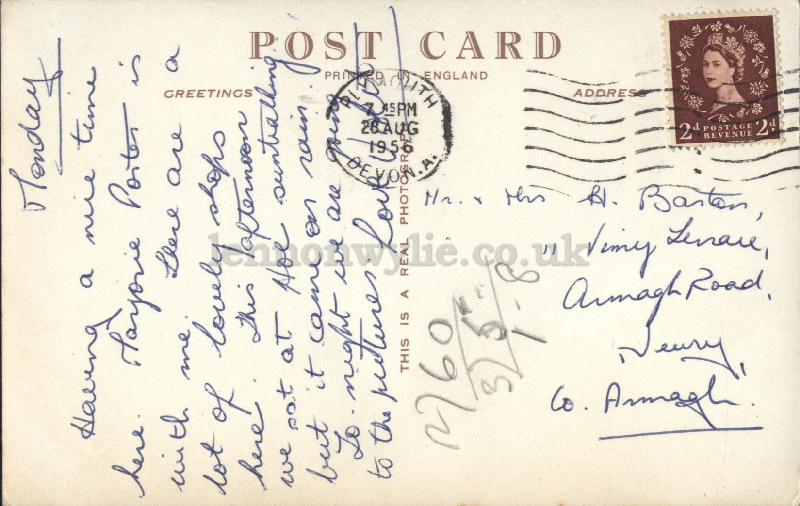 POST CARD
PRINTED IN ENGLAND
GREETINGS
ADDRESS
THIS IS A REAL PHOTOGRAPH
PLYMOUTH
7 45 PM
28 AUG
1956
DEVON. A.
2d POSTAGE 2d
REVENUE
Monday
Having a nice time
here. Marjorie Porter is
with me. There are a
lot of lovely shops
here. This afternoon
we sat at Hoe sunbathing
but it came on rain.
To-night we are going
to the pictures. Love
Mr. & Mrs H. Barton,
11 Vimy Terrace,
Armagh Road,
Newry
Co. Armagh.
12)60
3)5
1-8
lennonwylie.co.uk